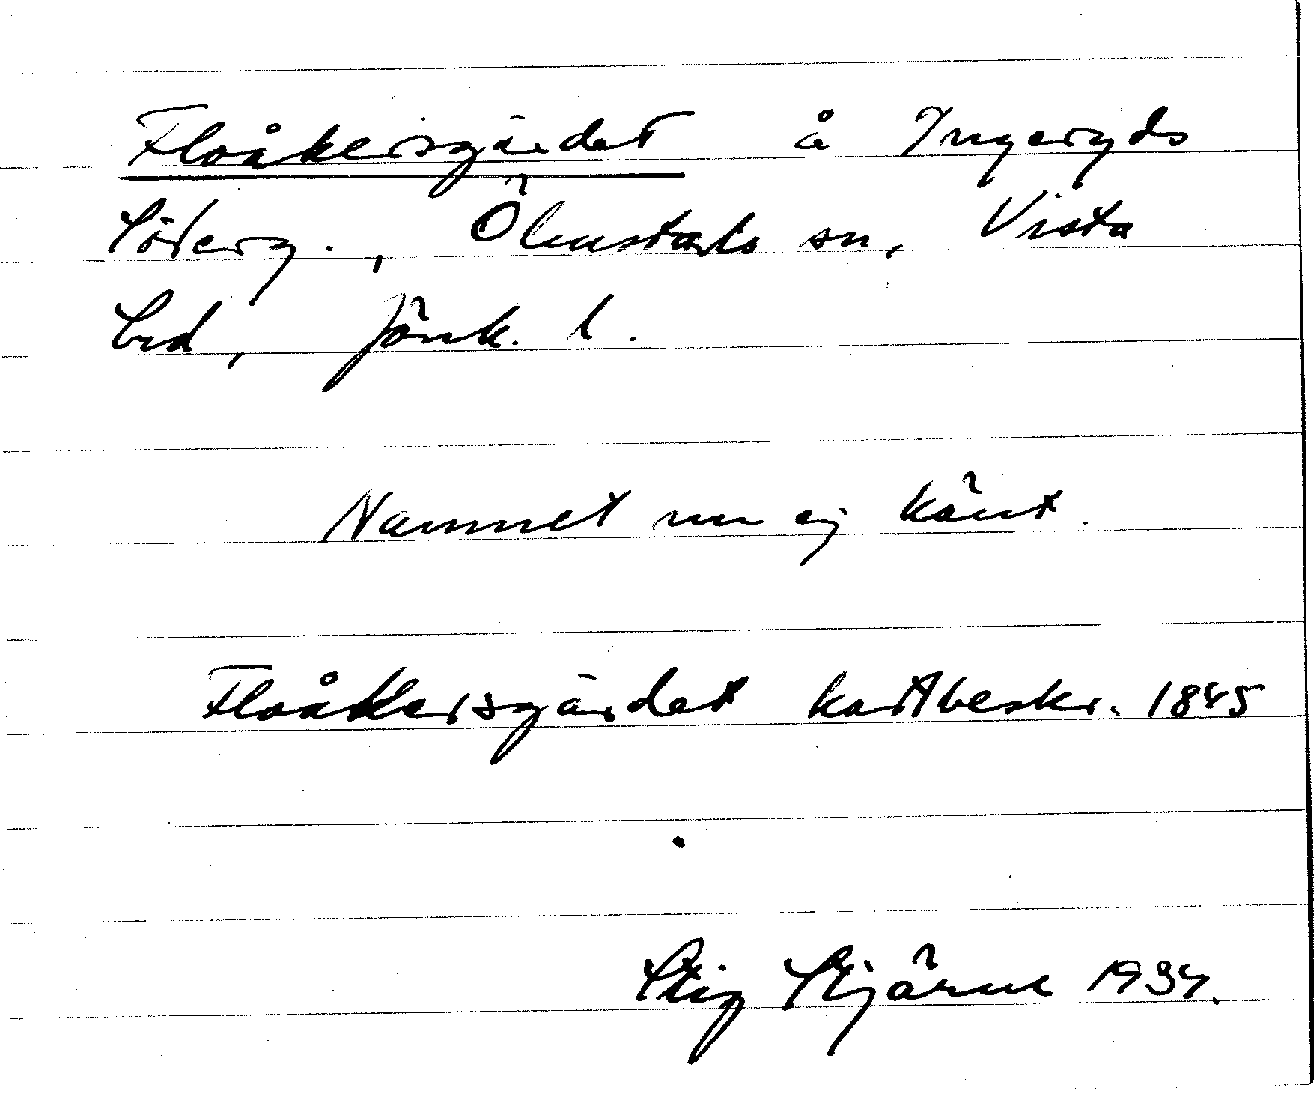 Floåkersgärdet å Ingeryds
Söderg., Ölmstads sn, Vista
hd, Jönk. l.
Namnet nu ej känt.
Floåkersgärdet kartbeskr. 1845
Stig Stjärne 1934.